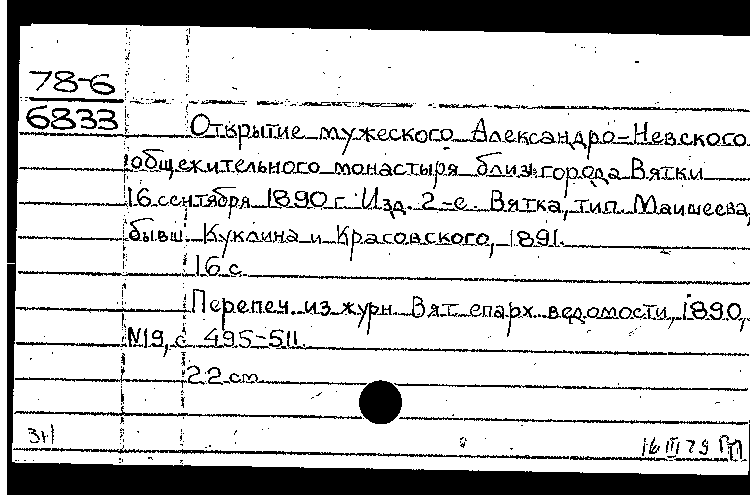 78-6
6833
Открытие мужеского Александро-Невского
общежительного монастыря близ города Вятки
16 сентября 1890 г. Изд. 2-е. Вятка, тип. Маишеева,
бывш. Куклина и Красовского, 1891.
16 с.
Перепеч. из журн. Вят. епарх. ведомости, 1890,
№19, с. 495-511.
22 см.
16 III 79